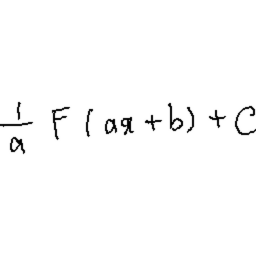 \frac{1}{a} F(ax+b)+C